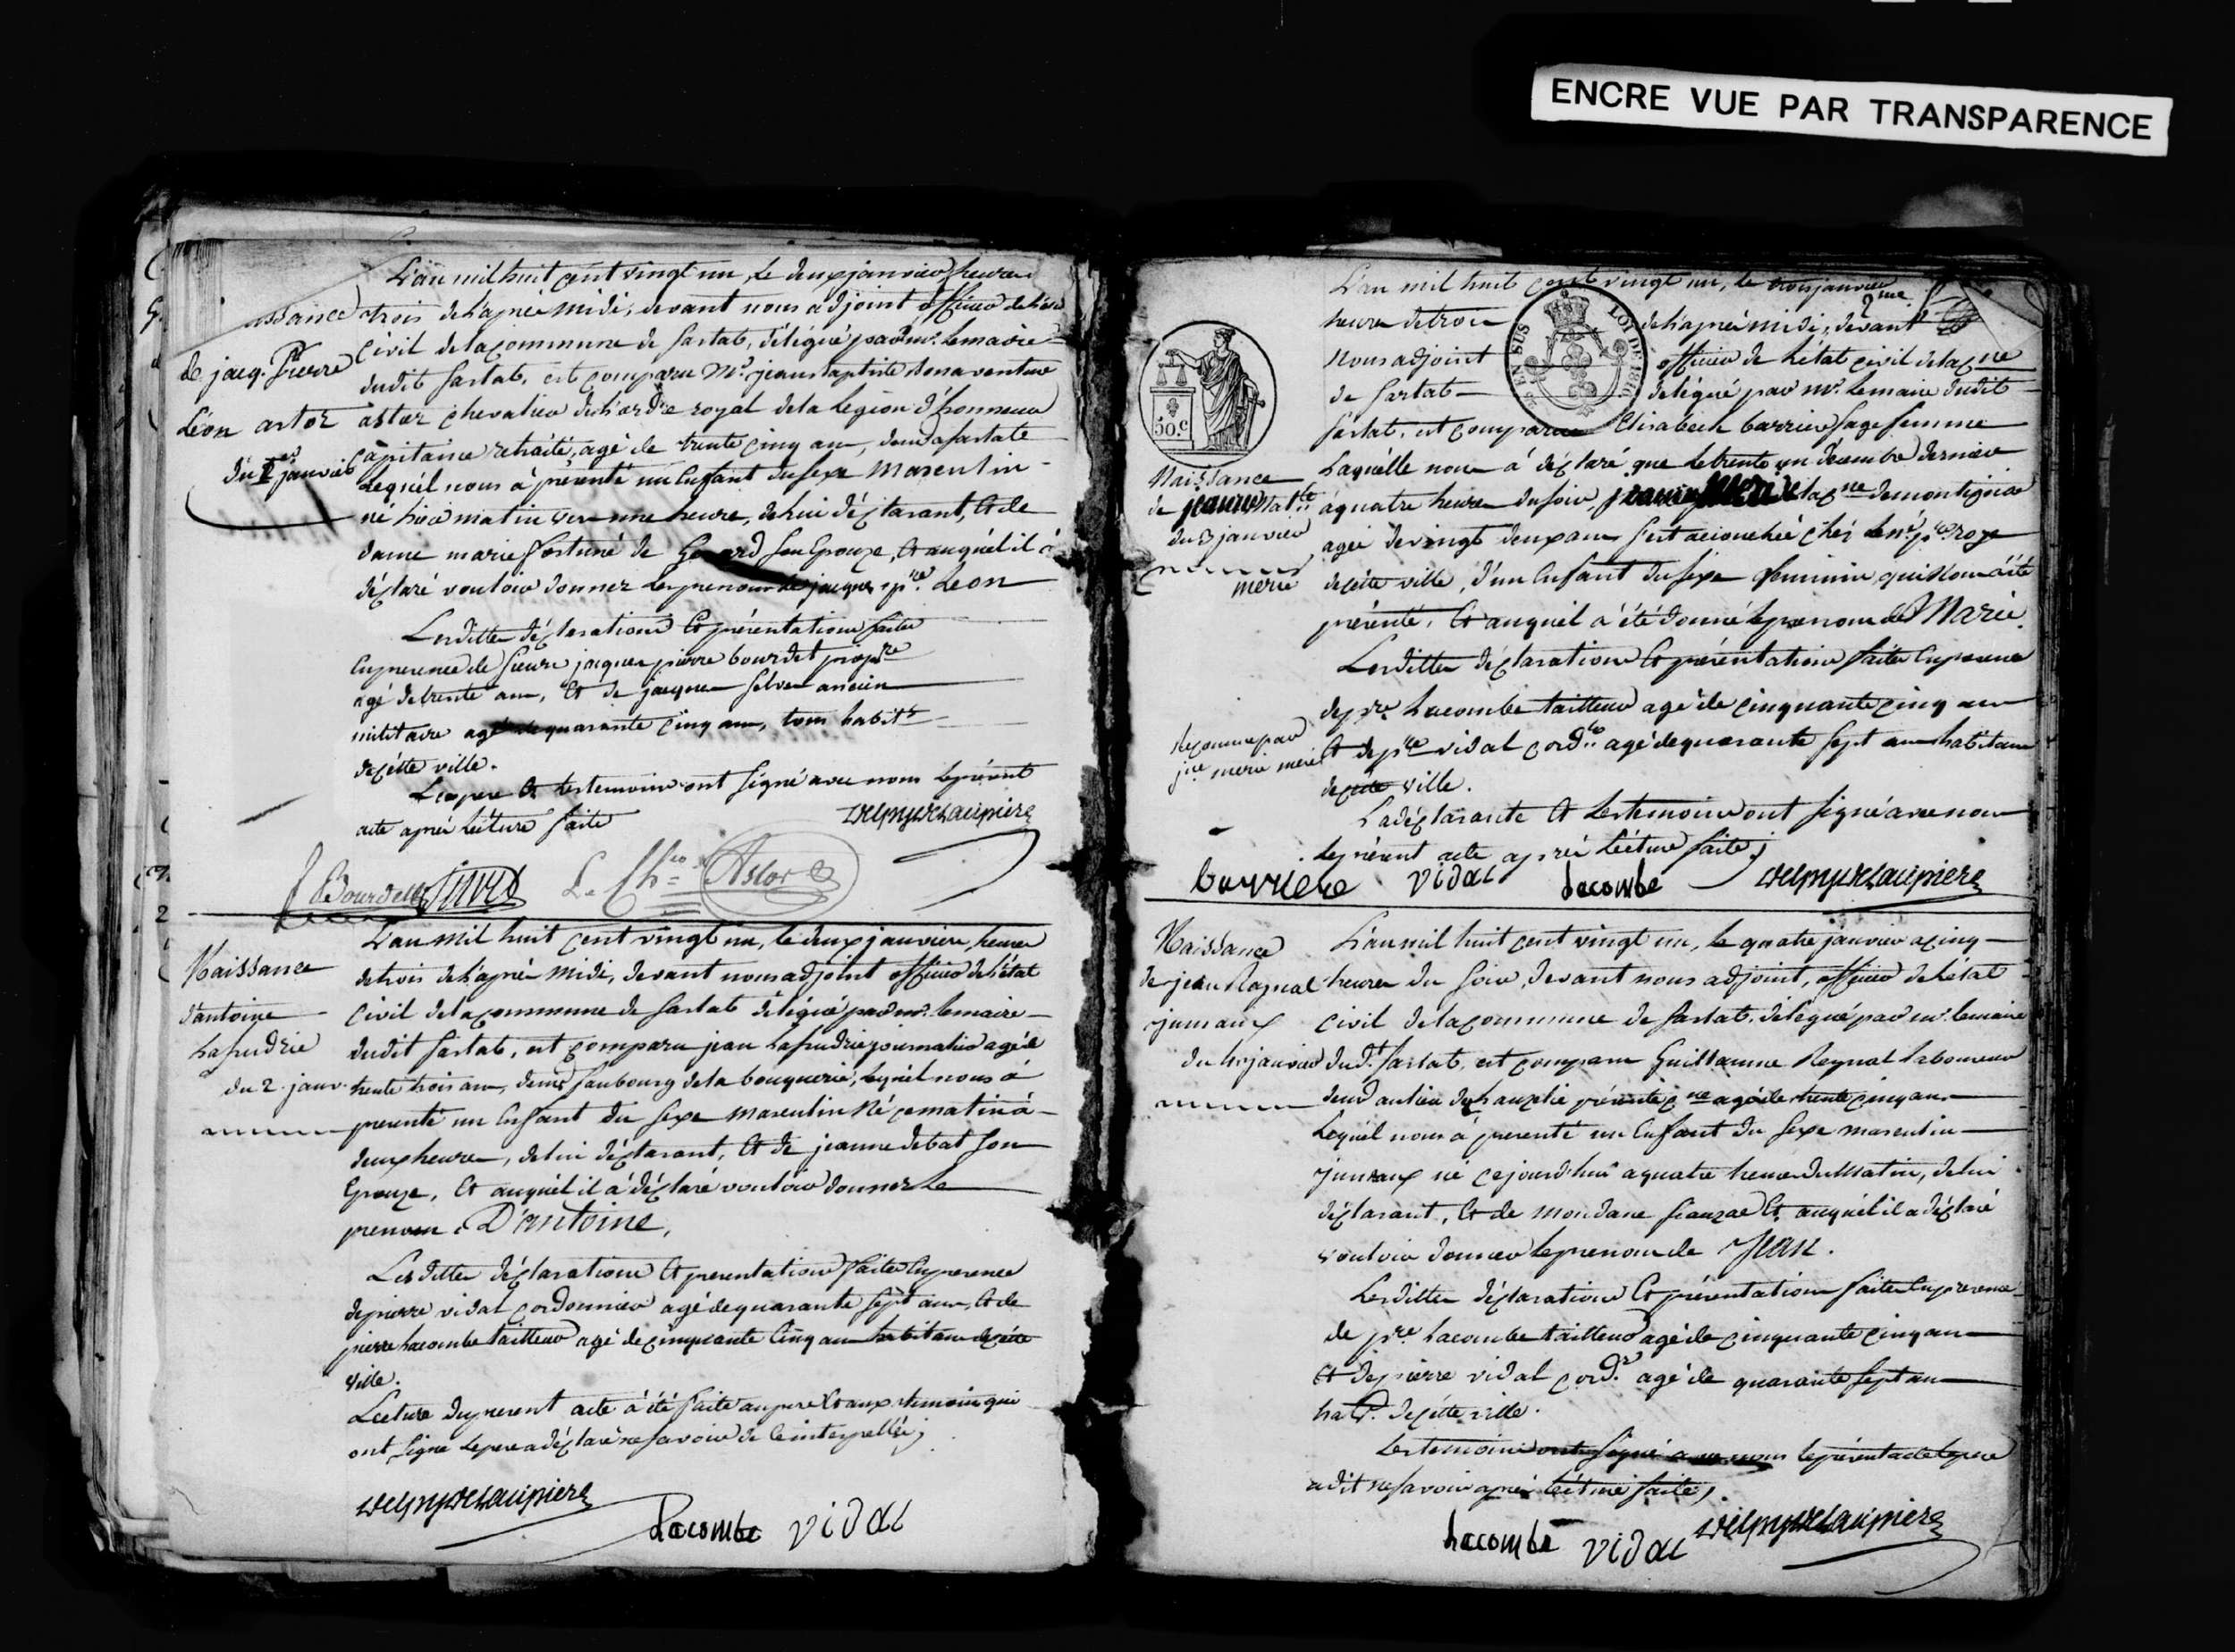 ENCRE VUE PAR TRANSPARENCE
L'an mil huit cent vingt un, le deux janvier heures
trois de l'après midi, devant nous adjoint officier de l'état
civil de la commune de Sarlat, délégué par mr. le maire
dudit Sarlat, est comparu Mr. jean baptiste bonaventure
astor chevalier de l'ordre royal de la Legion d'honneur
capitaine retraité, agé de trente cinq ans, demt a Sarlat
Lequel nous à présenté un Enfant du sexe Masculin
né hier matin vers une heure, de lui déclarant, Et de
dame marie fortuné de Gerard son Epouze, Et auquel il à
déclaré vouloir donner les prenoms de jacques pre. Leon
de jacq. Pierre
Léon astor
du 2 janvier
Lesdittes déclarations Et présentations faites
En presence de sieurs jacques pierre bourdet propre
agé de trente ans, Et de jacques selves ancien
militaire agé de quarante cinq ans, tous habits
de cette ville.
Le pere Et les temoins ont signé avec nous le présent
acte après lécture faite
Bourdet Selves Le Cher Astor
Naissance
d'antoine
Lafudrie
du 2. janv.
L'an mil huit cent vingt un, le deux janvier, heures
de trois de l'après midi, devant nous adjoint officier de l'état
civil de la commune de Sarlat délégué par mr. le maire
dudit Sarlat, est comparu jean Lafudrie journalier agé de
trente trois ans, demt faubourg de la bouquerie, lequel nous à
presenté un Enfant du sexe masculin Né ce matin à
deux heures, de lui déclarant, Et de jeanne debat son
Epouze, Et auquel il à déclaré vouloir donner le
prenom D'antoine,
Les dittes déclarations Et presentations faites En presence
de pierre vidal cordonnier agé de quarante sept ans, Et de
pierre Lacombe tailleur agé de cinquante Cinq ans habitans de cette
ville.
Lecture du present acte à été faite au pere Et aux temoins qui
ont signé le pere a déclaré ne savoir de ce interpellé;
Lacombe vidal
L'an mil huit cent vingt un, le trois janvier
heures de trois de l'après midi, devant
nous adjoint officier de l'état civil de la cne
de Sarlat délégué par mr. le maire dudit
Sarlat, est comparue Elisabeth barriere sage femme
EN SUS
LOI DE 1816
50.c
2me
Naissance
de
du 3 janvier
merié
Laquelle nous à déclaré que le trente un décembre dernier
à quatre heures du soir,
agée de vingt deux ans s'est accouchée chés
de cette ville, d'un Enfant du sexe feminin, qui nous à été
présenté, Et auquel à été donné le prenom de Marie.
Lesdittes déclarations Et présentations faites En presence
de pre. Lacombe tailleur agé de cinquante cinq ans
Et de pre vidal cordr agé de quarante sept ans habitans
de cette ville.
La déclarante Et les temoins ont signé avec nous
le présent acte après lécture faite;
barriere vidal Lacombe
Naissance
de jean Raynal
jumaux
du 4 janvier
L'an mil huit cent vingt un, le quatre janvier a cinq
heures du soir, devant nous adjoint, officier de l'état
civil de la commune de Sarlat, délégué par mr. le maire
dud. Sarlat, est comparu Guillaume Reynal laboureur
Lequel nous à presenté un Enfant du sexe masculin
jumaux né cejourd'hui a quatre heures du Matin, de lui
déclarant, Et de mondane Et auquel il a déclaré
vouloir donner le prenom de Jean.
Lesdittes déclarations Et présentations faites En presence
de pre. Lacombe tailleur agé de cinquante cinq ans
Et de pierre vidal cordr. agé de quarante sept ans
hab. de cette ville.
Les temoins ont signé avec nous le présent acte le pere
a dit ne savoir après lécture faite;
Lacombe vidal